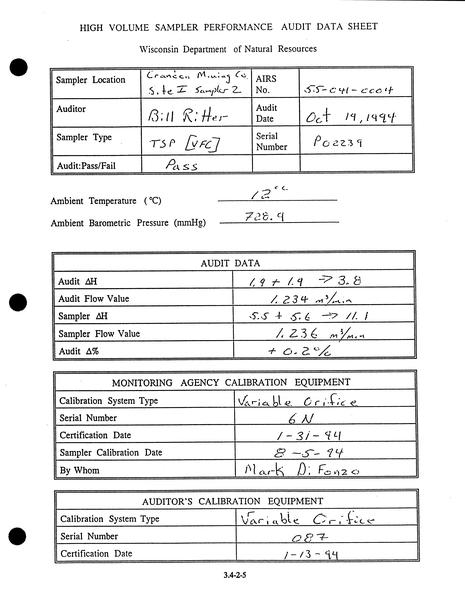 HIGH VOLUME SAMPLER PERFORMANCE AUDIT DATA SHEET
Wisconsin Department of Natural Resources
Sampler Location Crandon Mining Co. Site I Sampler 2 AIRS No. 55-041-0004
Auditor Bill Ritter Audit Date Oct 19, 1994
Sampler Type TSP [VFC] Serial Number P02239
Audit:Pass/Fail Pass
Ambient Temperature (°C) 12°C
Ambient Barometric Pressure (mmHg) 728.9
AUDIT DATA
Audit ΔH 1.9 + 1.9 → 3.8
Audit Flow Value 1.234 m³/min
Sampler ΔH 5.5 + 5.6 → 11.1
Sampler Flow Value 1.236 m³/min
Audit Δ% + 0.2%
MONITORING AGENCY CALIBRATION EQUIPMENT
Calibration System Type Variable Orifice
Serial Number 6N
Certification Date 1-31-94
Sampler Calibration Date 8-5-94
By Whom Mark Di Fonzo
AUDITOR'S CALIBRATION EQUIPMENT
Calibration System Type Variable Orifice
Serial Number 087
Certification Date 1-13-94
3.4-2-5